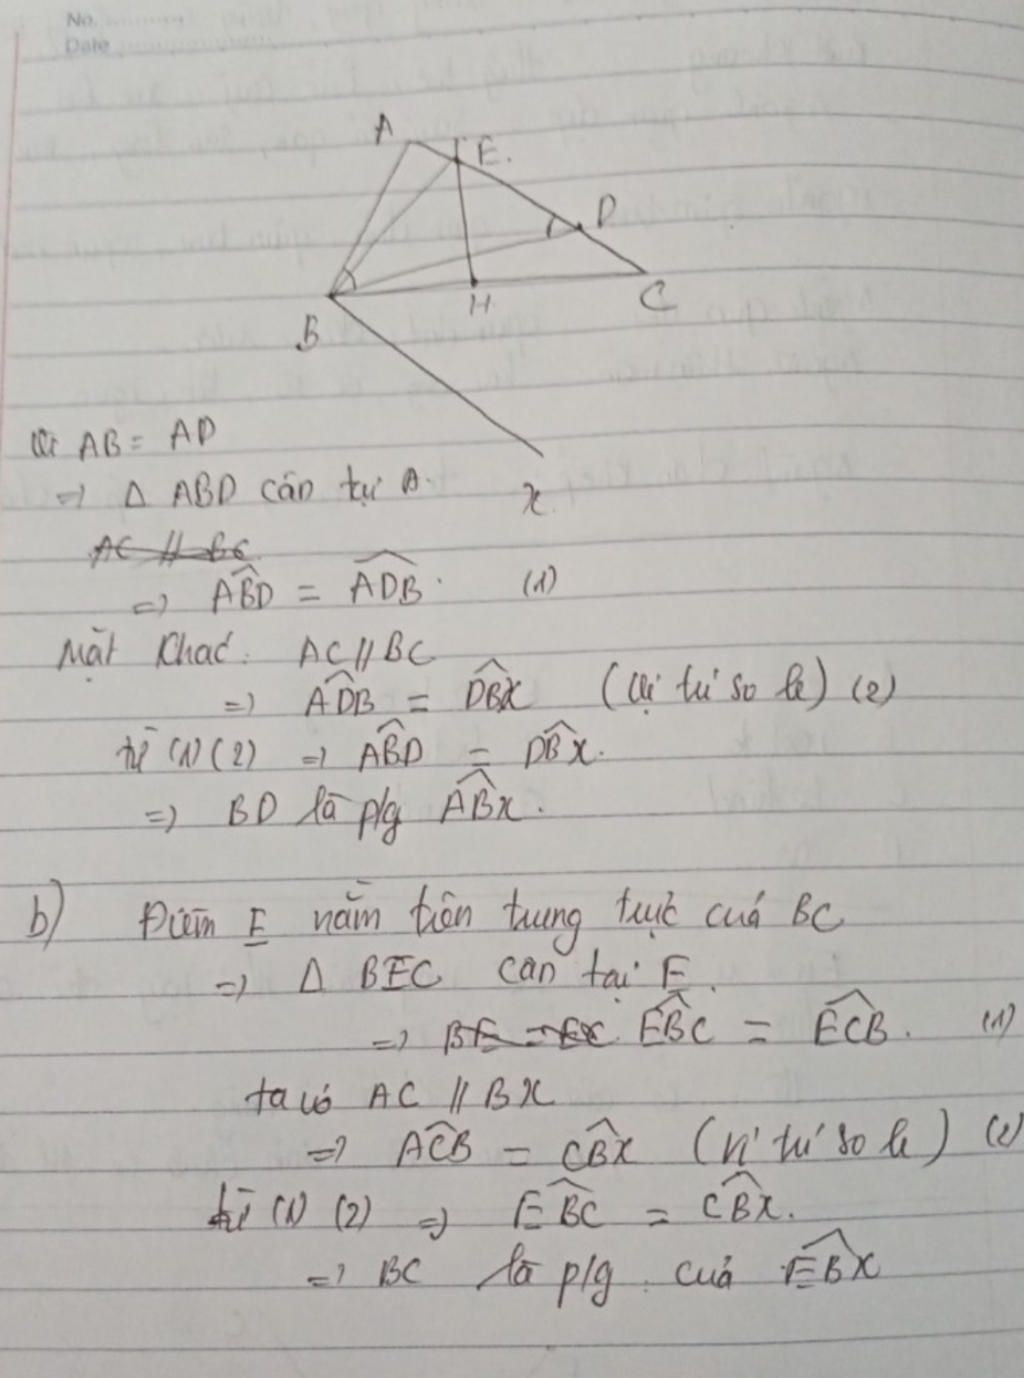 No.
Date
A
E.
D
B
H
C
x
Vì AB = AD
=> Δ ABD cân tại A.
AC // BC
=> ABD = ADB. (1)
Mặt khác: AC // BC
=> ADB = DBx (vị trí so le) (2)
từ (1) (2) => ABD = DBx.
=> BD là p/g ABx.
b) Điểm E nằm trên trung trực của BC
=> Δ BEC cân tại E.
=> BE = EC EBC = ECB. (1)
ta có AC // Bx
=> ACB = CBx (vị trí so le) (2)
từ (1) (2) => EBC = CBx.
=> BC là p/g của EBx